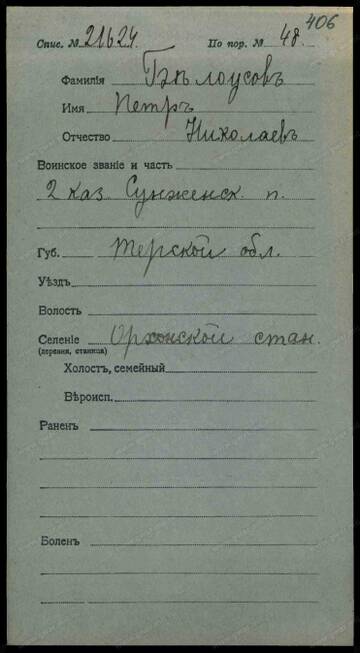 406
Спис. № 21624 По пор. № 48.
Фамилія Бѣлоусовъ
Имя Петръ
Отчество Николаевъ
Воинское званіе и часть
2 каз. Сунженск. п.
Губ. Терской обл.
Уѣздъ
Волость
Селеніе Орхонской стан.
(деревня, станица)
Холостъ, семейный
Вѣроисп.
Раненъ
Боленъ